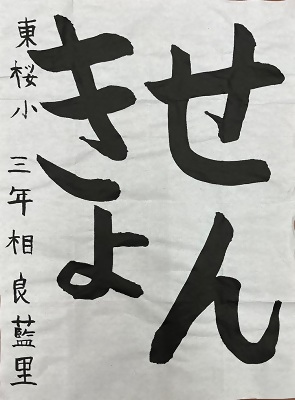 せん
きょ
東桜小 三年 相良藍里